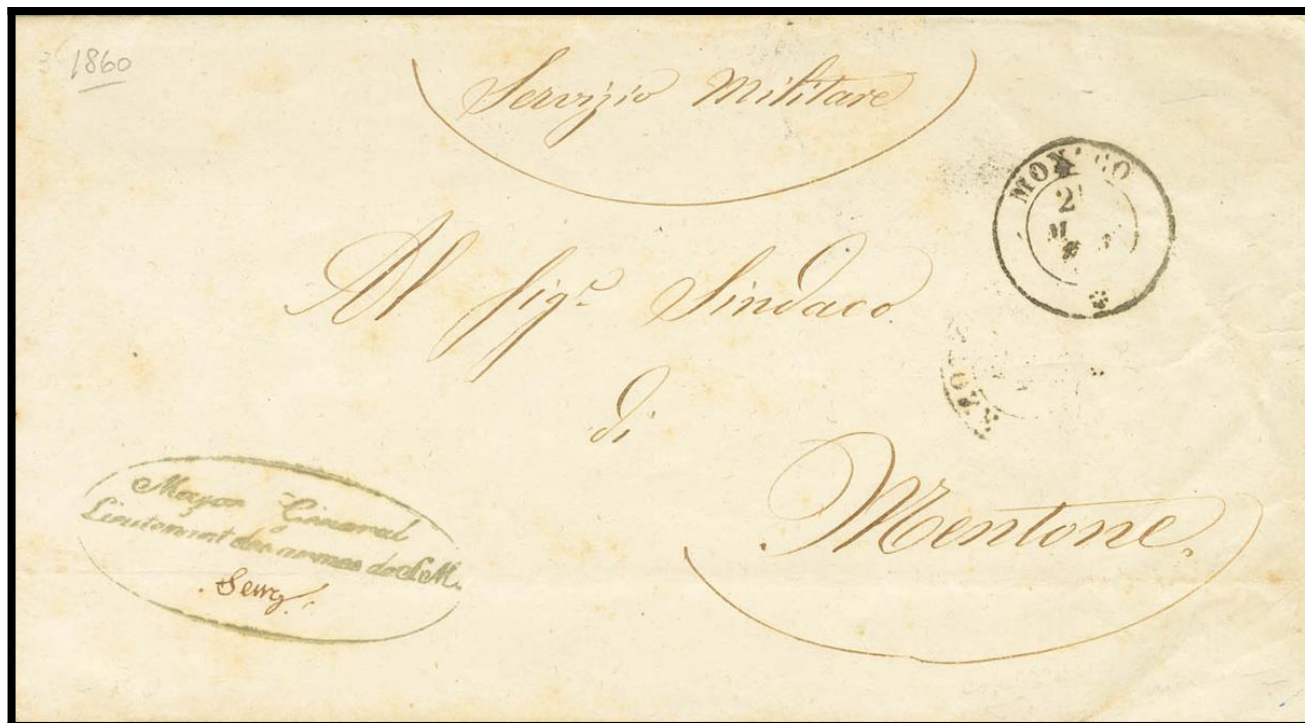 1860
Servizio Militare
MONACO
2
M
Al Sigr. Sindaco
di
Mentone.
Mayor Géneral
Lieutenant des armes de S.M.